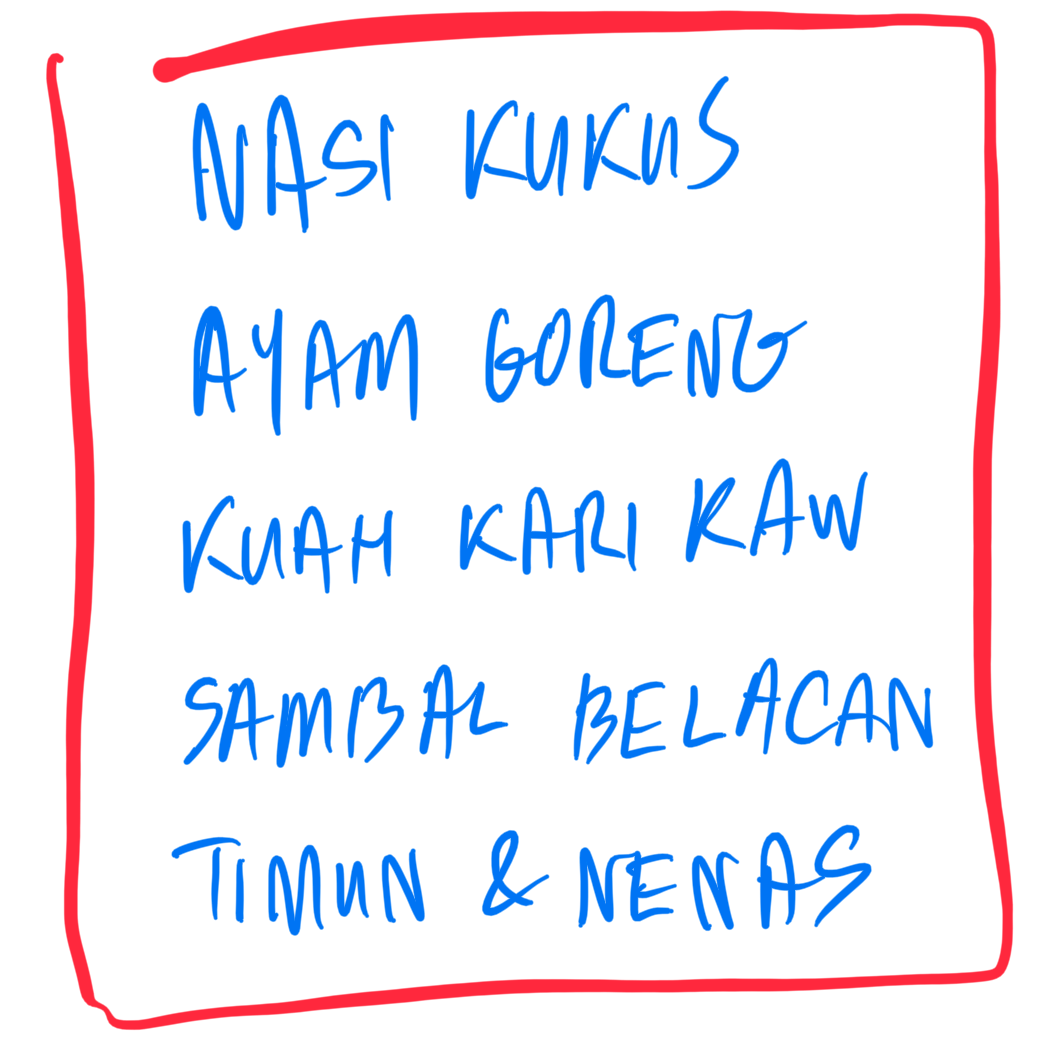 NASI KUKUS
AYAM GORENG
KUAH KARI KAW
SAMBAL BELACAN
TIMUN & NENAS